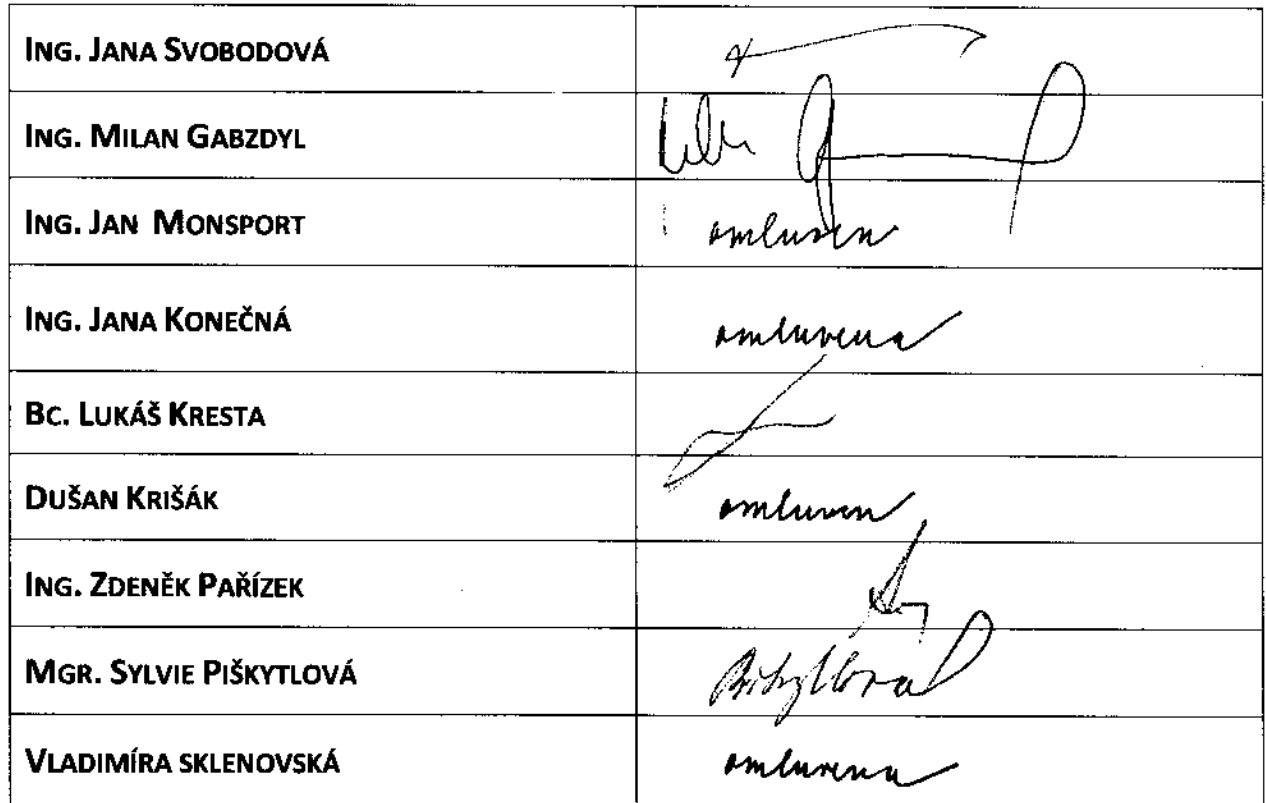 ING. JANA SVOBODOVÁ
ING. MILAN GABZDYL
ING. JAN MONSPORT omluven
ING. JANA KONEČNÁ omluvena
BC. LUKÁŠ KRESTA
DUŠAN KRIŠÁK omluven
ING. ZDENĚK PAŘÍZEK
MGR. SYLVIE PIŠKYTLOVÁ
VLADIMÍRA SKLENOVSKÁ omluvena